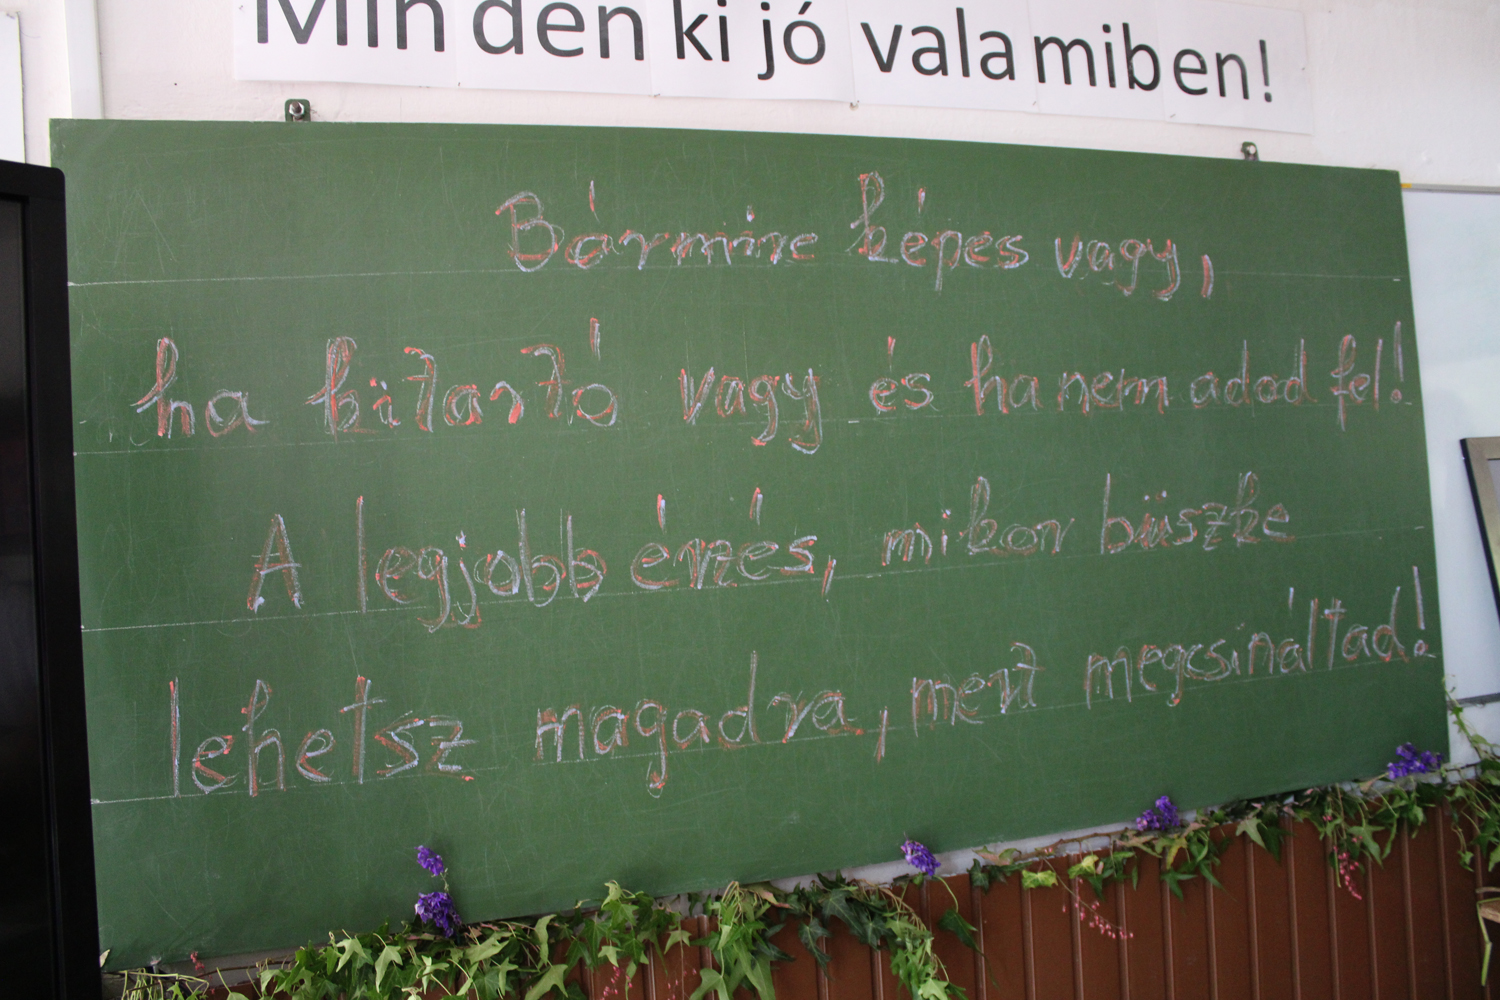 Mindenki jó valamiben!
Bármire képes vagy,
ha kitartó vagy és ha nem adod fel!
A legjobb érzés, mikor büszke
lehetsz magadra, mert megcsináltad!